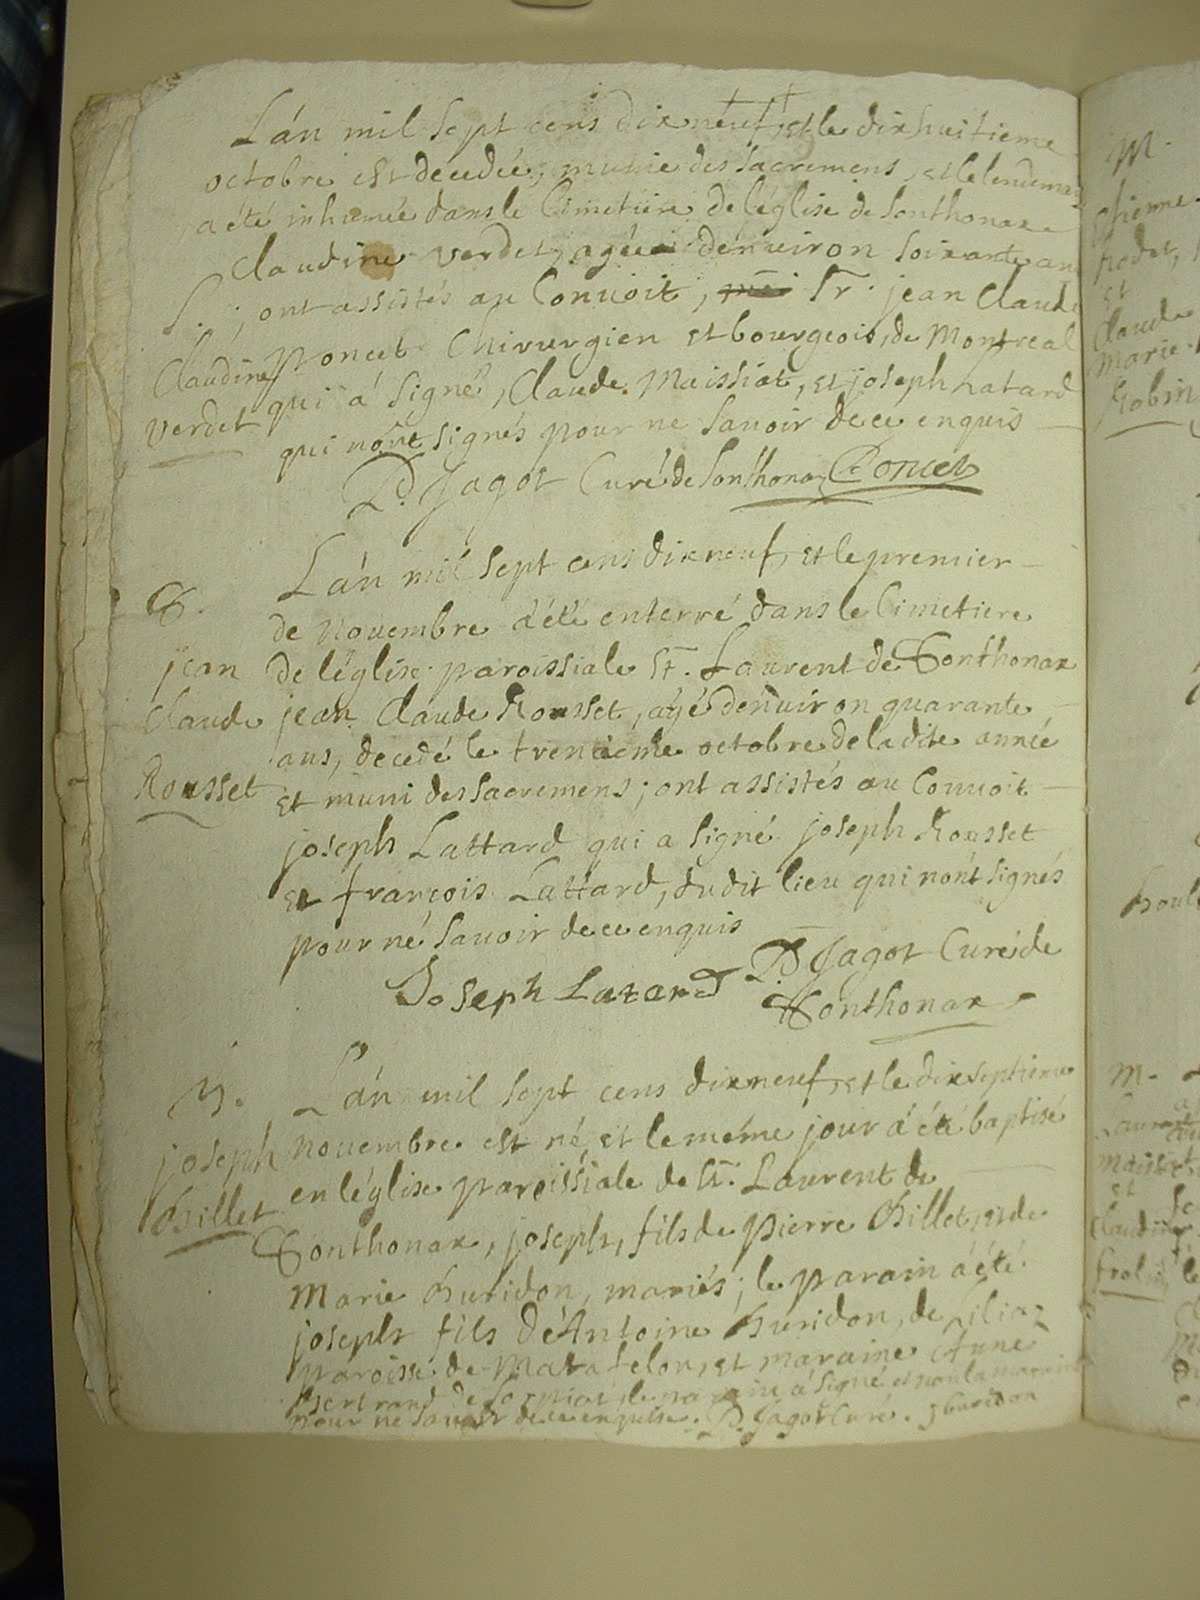 L'án mil sept cens dix neuf, et le dixhuitieme
octobre est decedée, munie des sacremens, et le lendemain
a été inhumée dans le Cimetiere de l'église de Sonthonax
Claudine verdet, agée d'enuiron soixante ans
S. ; ont assistés au Conuoit, Sr. jean Claude
Claudine
verdet
poncet Chirurgien et bourgeois, de Montreal
qui a signé, Claude Maissiat, et joseph Latard
qui nónt signés pour ne sauoir de ce enquis
D. Jagot Curé de Sonthonax Poncet
S.
jean
Claude
Rousset
L'án mil sept cens dix neuf, et le premier
de nouembre a été enterré dans le Cimetiere
de l'église paroissiale St. Laurent de Sonthonax
jean Claude Rousset, agé d'enuiron quarante
ans, decedé le trentieme octobre de la dite année
et muni des sacremens ; ont assistés au Conuoit
joseph Lattard qui a signé joseph Rousset
et françois Lattard, du dit lieu qui nónt signés
pour né sauoir de ce enquis
Joseph Latard D. Jagot Curé de
Sonthonax
joseph
Billet
L'án mil sept cens dix neuf, et le dix septieme
nouembre est né, et le même jour á été baptisé
en l'église paroissiale de St. Laurent de
Sonthonax, joseph, fils de pierre Billet, et de
Marie Buridon, mariés ; le parain á été
joseph fils d'Antoine Buridon, de
paroisse de Matafelon, et maraine
Bertrand de le parain á signé et non la maraine
pour ne sauoir de ce enquise. D. Jagot Curé. j buridon
M.
et
Claude
marie
Robin
M.
et